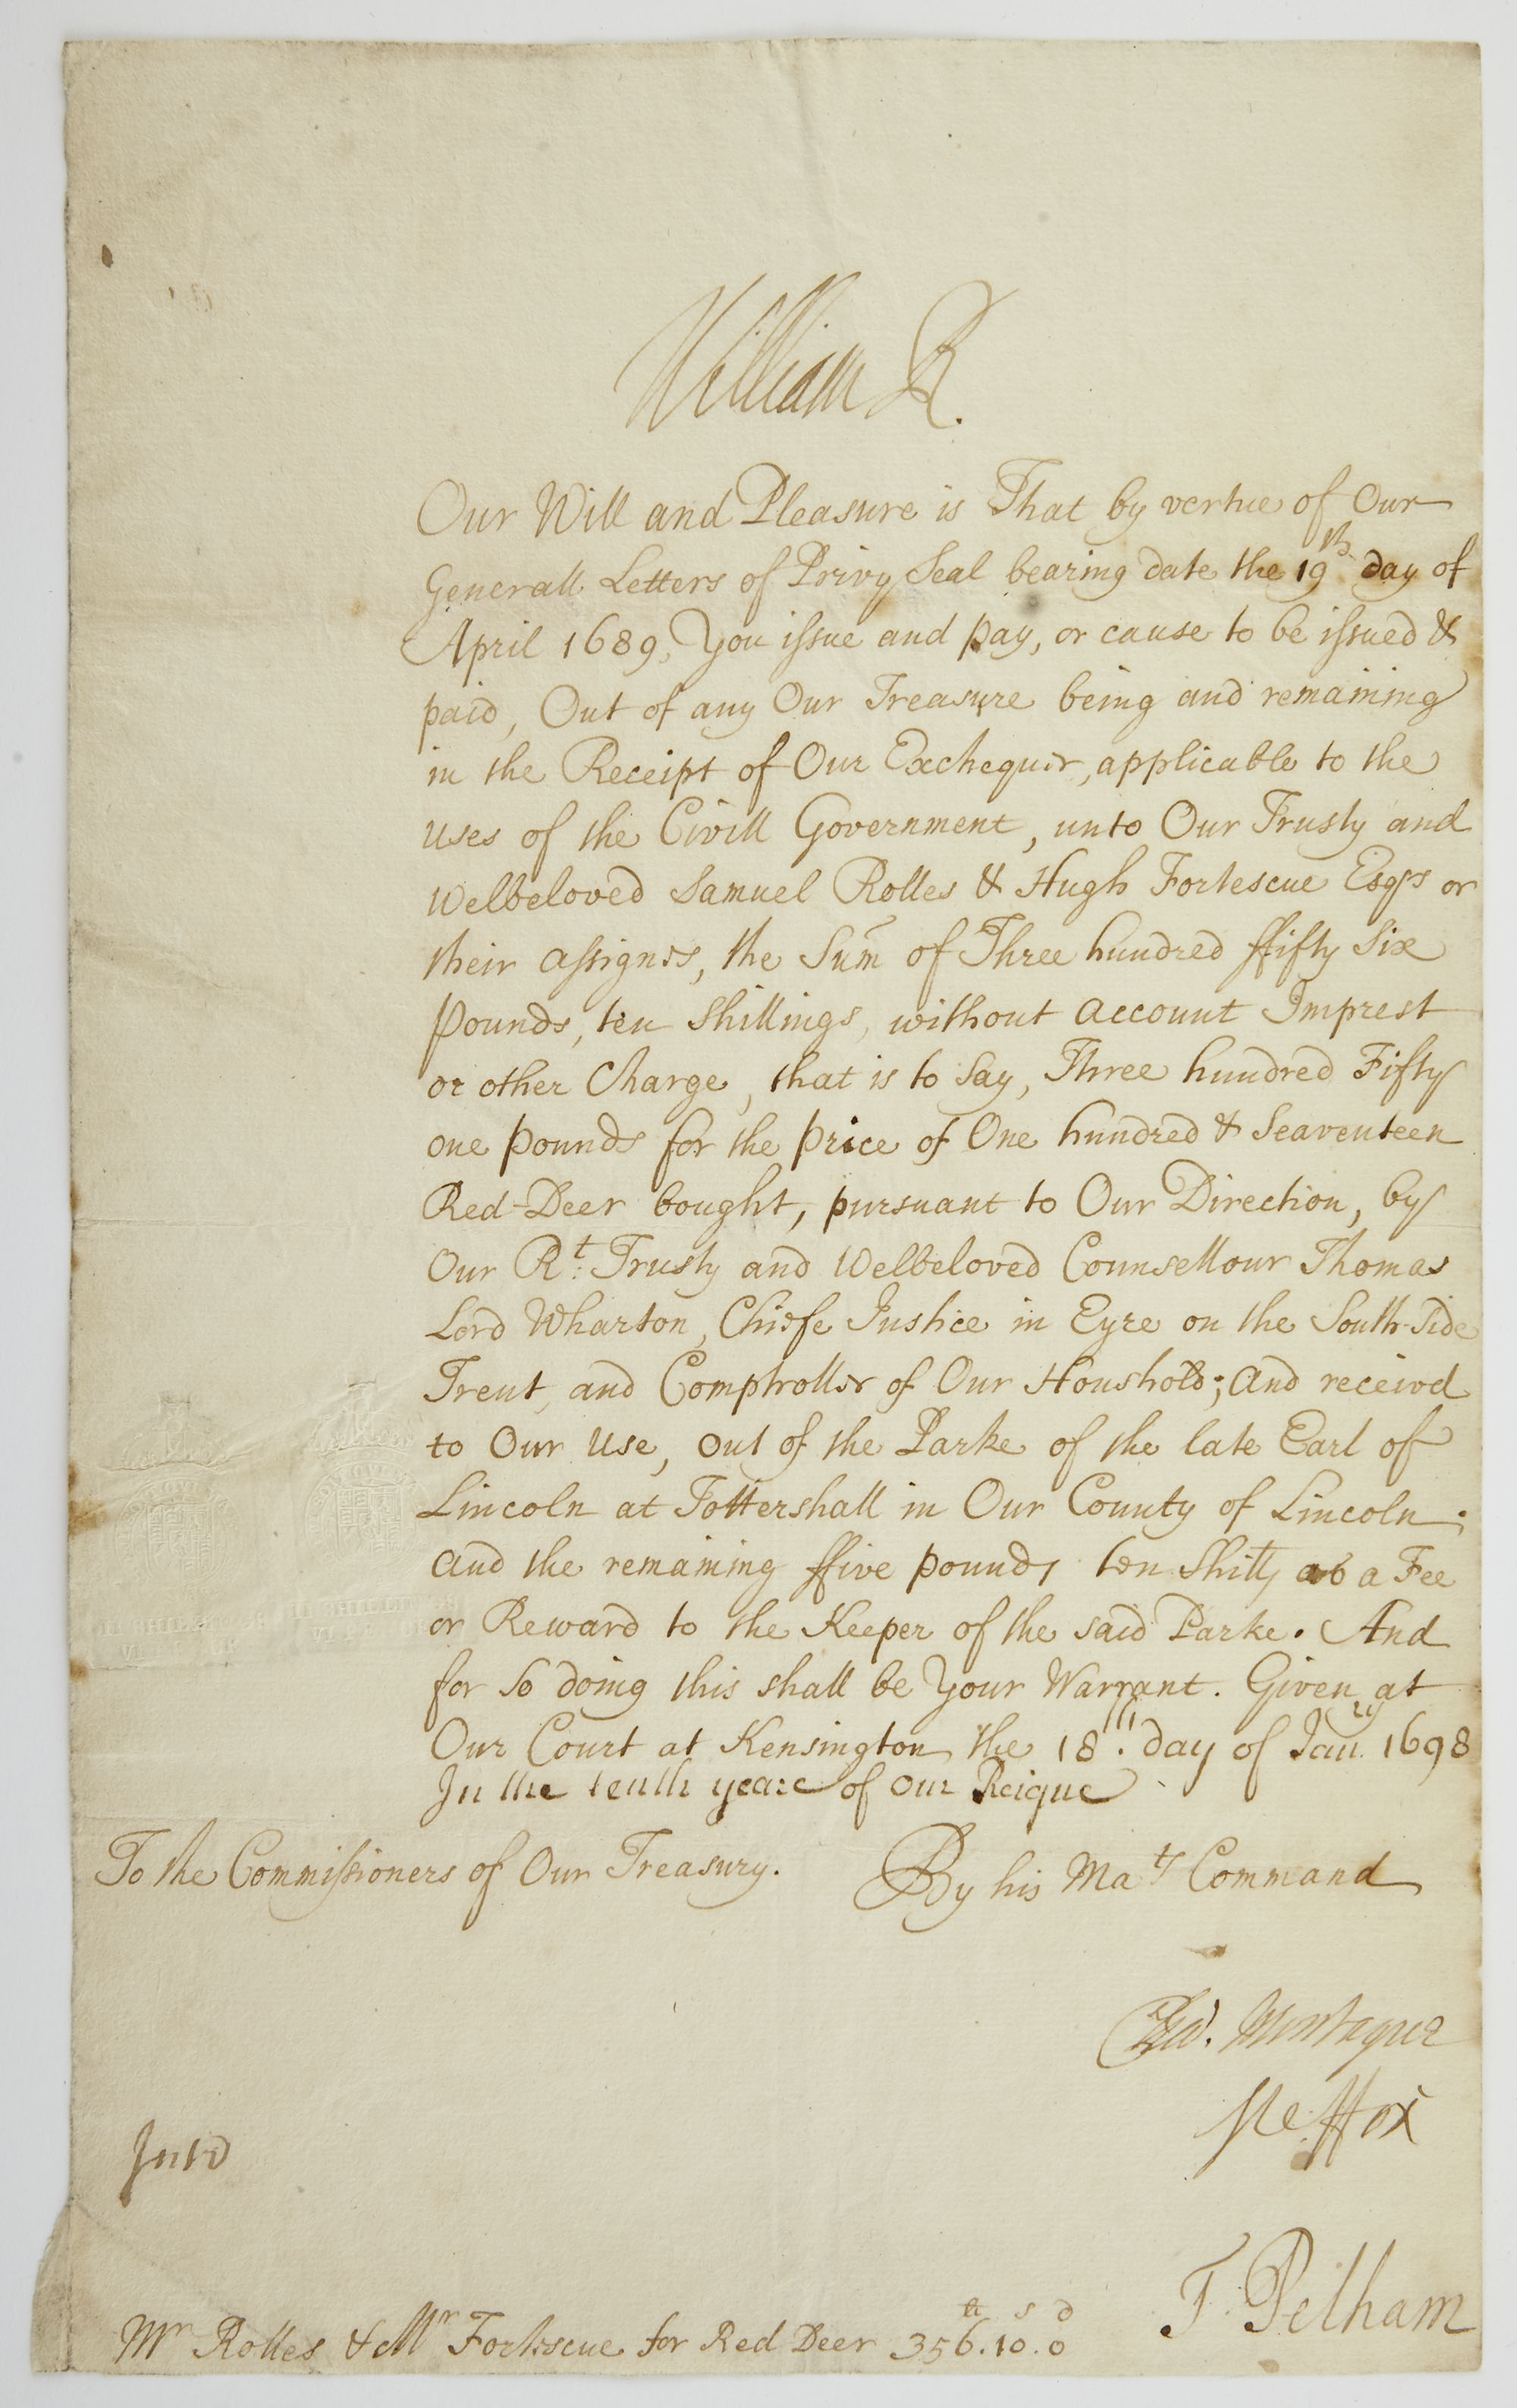 William R.
Our Will and Pleasure is That by vertue of Our
Generall Letters of Privy Seal bearing date the 19th day of
April 1689, You issue and pay, or cause to be issued &
paid, Out of any Our Treasure being and remaining
in the Receipt of Our Exchequer, applicable to the
uses of the Civill Government, unto Our Trusty and
Welbeloved Samuel Rolles & Hugh Fortescue Esqrs or
their assignes, the Sum̄ of Three hundred ffifty Six
Pounds, ten Shillings, without account Imprest
or other Charge, that is to Say, Three hundred Fifty
one pounds for the price of One hundred & Seaventeen
Red-Deer bought, pursuant to Our Direction, by
Our Rt. Trusty and Welbeloved Counsellour Thomas
Lord Wharton, Chiefe Justice in Eyre on the South-Side
Trent, and Comptroller of Our Houshold; And receivd
to Our Use, out of the Parke of the late Earl of
Lincoln at Tottershall in Our County of Lincoln;
And the remaining ffive pounds ten Shills as a Fee
or Reward to the Keeper of the said Parke. And
for so doing this shall be Your Warrant. Given at
Our Court at Kensington the 18th. day of Janry. 1698
In the tenth yeare of Our Reigne
To the Commissioners of Our Treasury. By his Mats Command
Montague
Ste ffox
Intd
T. Pelham
li s d
Mr Rolles & Mr Fortescue for Red Deer 356.10.0